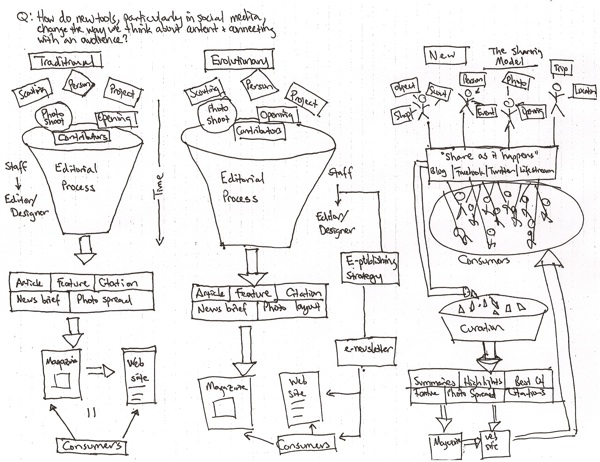 Q: How do new tools, particularly in social media,
change the way we think about content & connecting
with an audience?
Traditional
Scouting
Person
Project
Photo
shoot
Opening
Contributors
Editorial
Process
Staff
Editor/
Designer
Time
Article
Feature
Citation
News brief
Photo spread
Magazine
Web
site
Consumers
Evolutionary
Scouting
Person
Project
Photo
shoot
Opening
Contributors
Editorial
Process
Staff
Editor/
Designer
E-publishing
Strategy
e-newsletter
Article
Feature
Citation
News brief
Photo layout
Magazine
Web
site
Consumers
New
The Sharing
Model
Object
Scout
Person
Photo
Trip
Shop
Event
Opening
Location
"Share as it happens"
Blog | Facebook | Twitter | Lifestream
Consumers
Curation
Summaries
Highlights
Best Of
Feature
Photo Spread
Citations
Magazine
Web
site